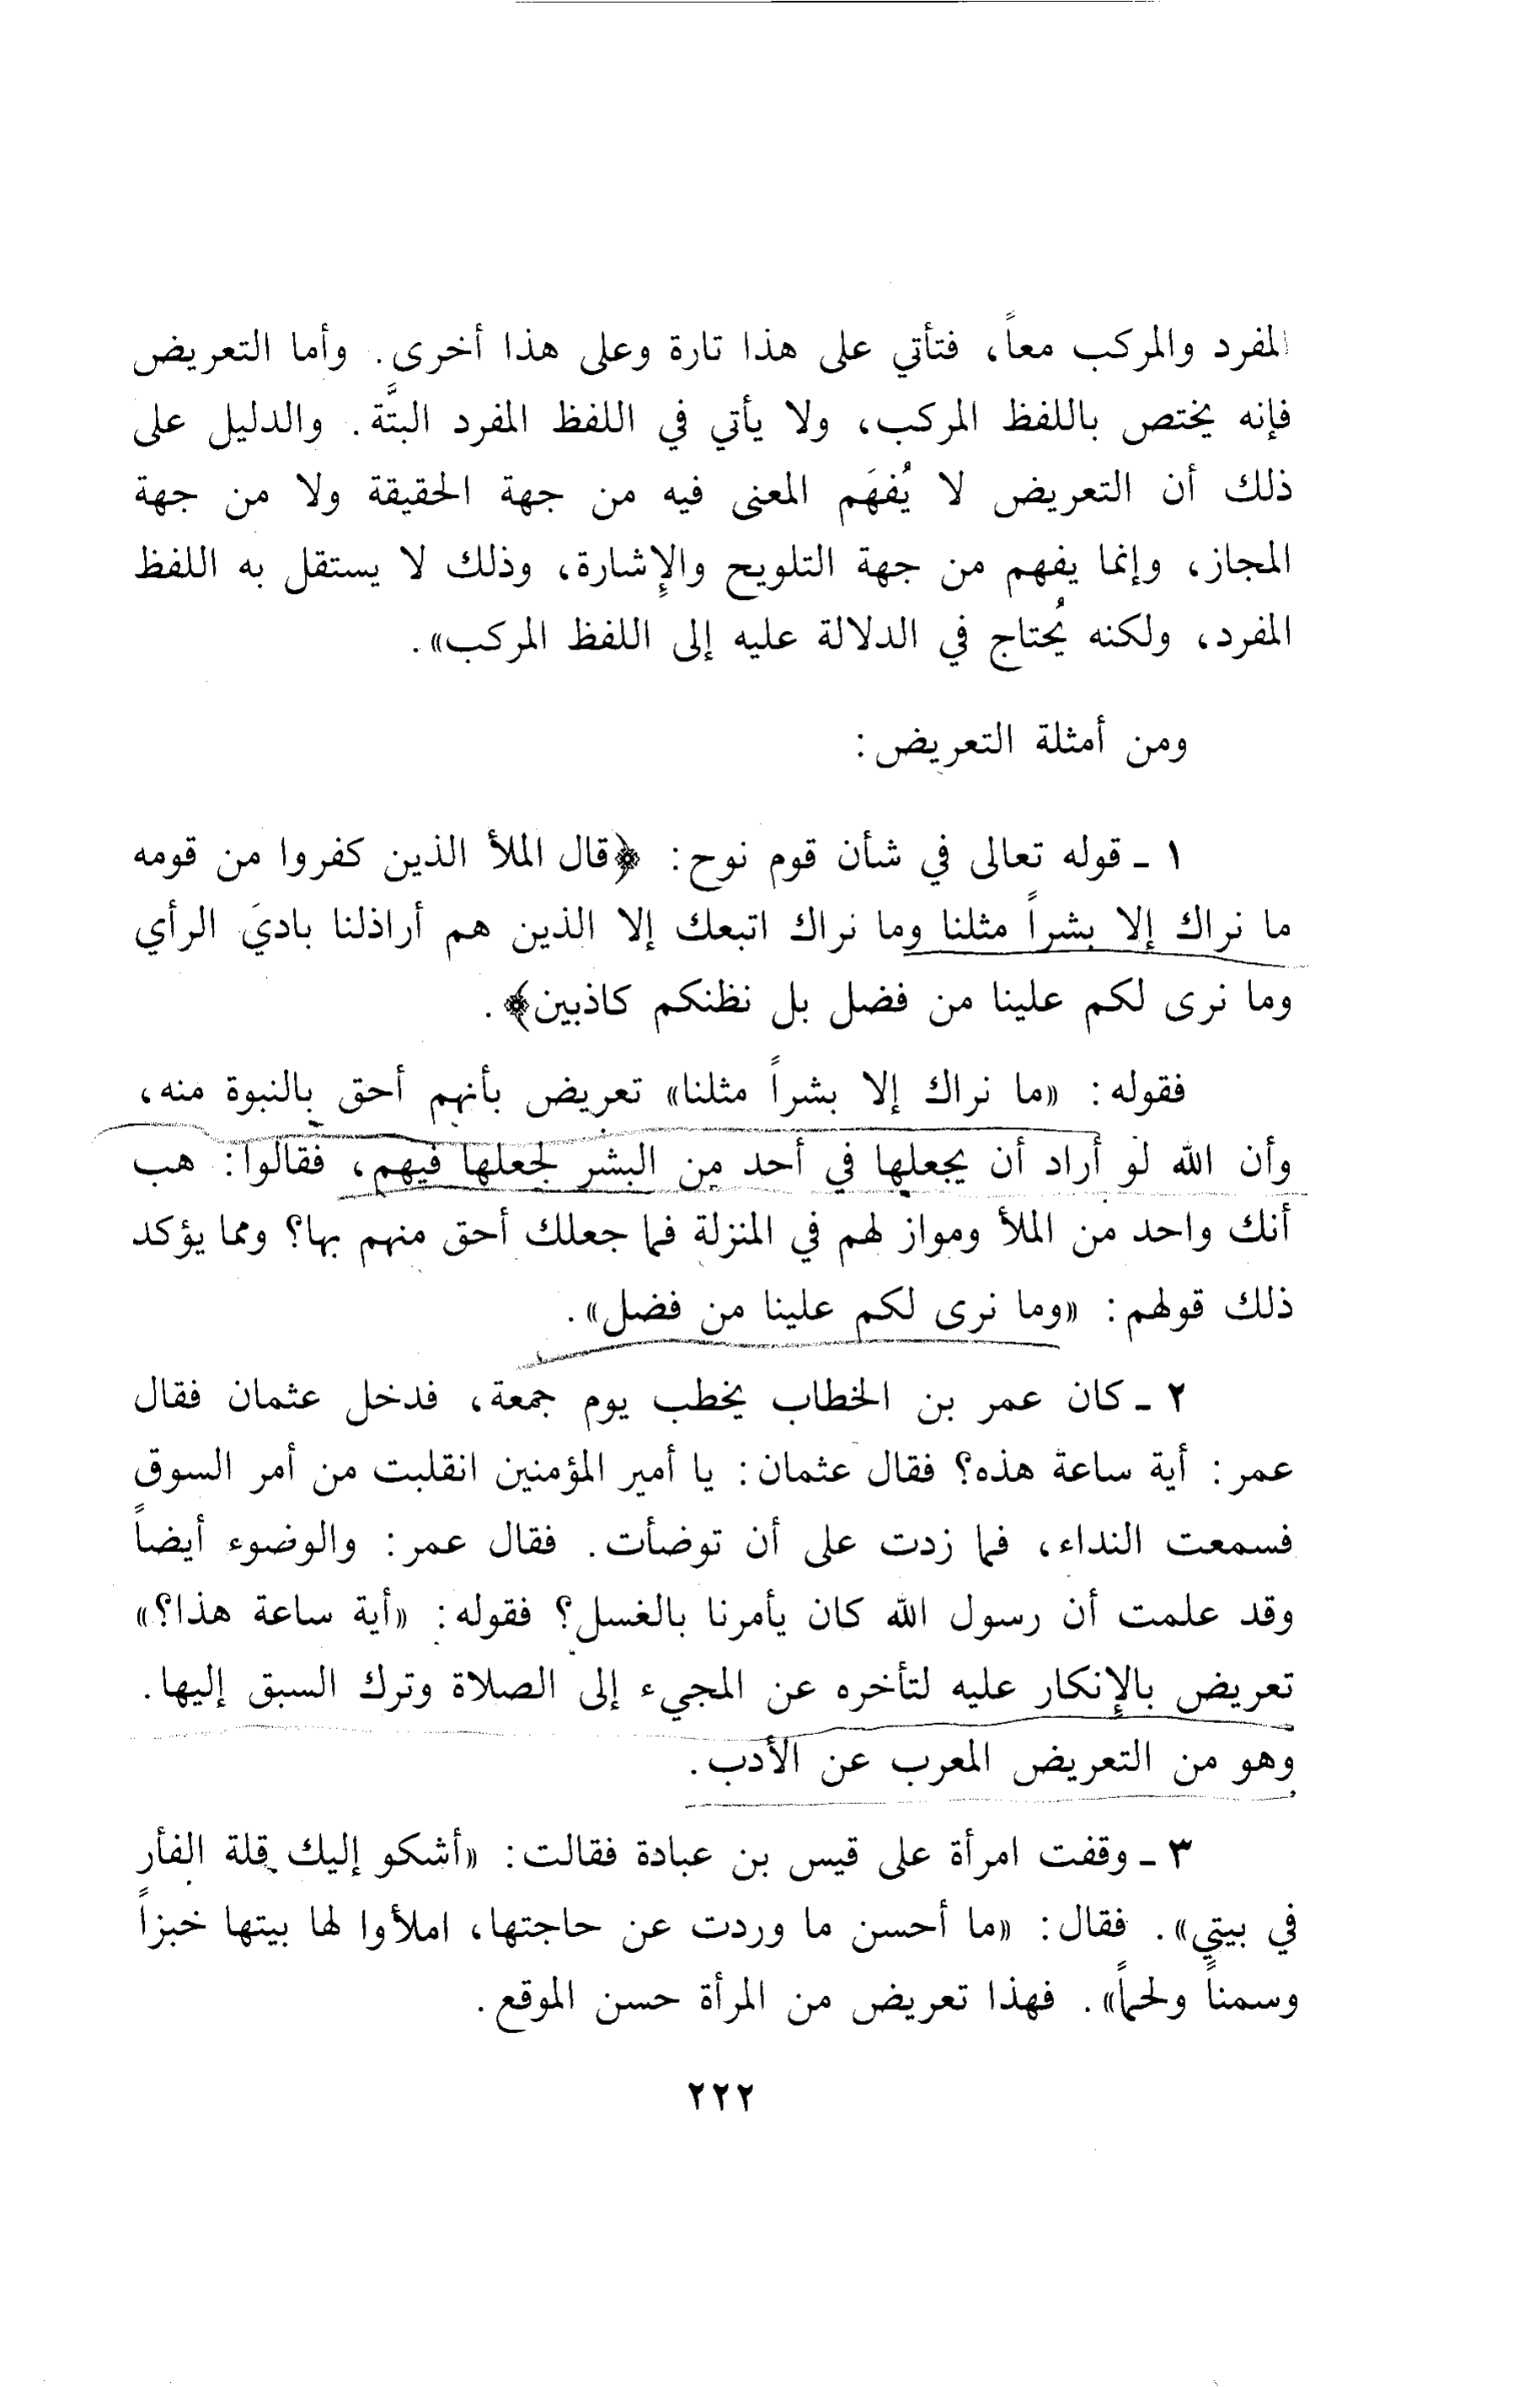 المفرد والمركب معاً، فتأتي على هذا تارة وعلى هذا أخرى. وأما التعريض
فإنه يختص باللفظ المركب، ولا يأتي في اللفظ المفرد البتَّة. والدليل على
ذلك أن التعريض لا يُفهَم المعنى فيه من جهة الحقيقة ولا من جهة
المجاز، وإنما يفهم من جهة التلويح والإشارة، وذلك لا يستقل به اللفظ
المفرد، ولكنه يُحتاج في الدلالة عليه إلى اللفظ المركب».
ومن أمثلة التعريض:
١ ـ قوله تعالى في شأن قوم نوح: ﴿قال الملأ الذين كفروا من قومه
ما نراك إلا بشراً مثلنا وما نراك اتبعك إلا الذين هم أراذلنا باديَ الرأي
وما نرى لكم علينا من فضل بل نظنكم كاذبين﴾.
فقوله: «ما نراك إلا بشراً مثلنا» تعريض بأنهم أحق بالنبوة منه،
وأن الله لو أراد أن يجعلها في أحد من البشر لجعلها فيهم، فقالوا: هب
أنك واحد من الملأ ومواز لهم في المنزلة فما جعلك أحق منهم بها؟ ومما يؤكد
ذلك قولهم: «وما نرى لكم علينا من فضل».
٢ ـ كان عمر بن الخطاب يخطب يوم جمعة، فدخل عثمان فقال
عمر: أية ساعة هذه؟ فقال عثمان: يا أمير المؤمنين انقلبت من أمر السوق
فسمعت النداء، فما زدت على أن توضأت. فقال عمر: والوضوء أيضاً
وقد علمت أن رسول الله كان يأمرنا بالغسل؟ فقوله: «أية ساعة هذا؟»
تعريض بالإنكار عليه لتأخره عن المجيء إلى الصلاة وترك السبق إليها.
وهو من التعريض المعرب عن الأدب.
٣ ـ وقفت امرأة على قيس بن عبادة فقالت: «أشكو إليك قلة الفأر
في بيتي». فقال: «ما أحسن ما وردت عن حاجتها، املأوا لها بيتها خبزاً
وسمناً ولحماً». فهذا تعريض من المرأة حسن الموقع.
٢٢٢